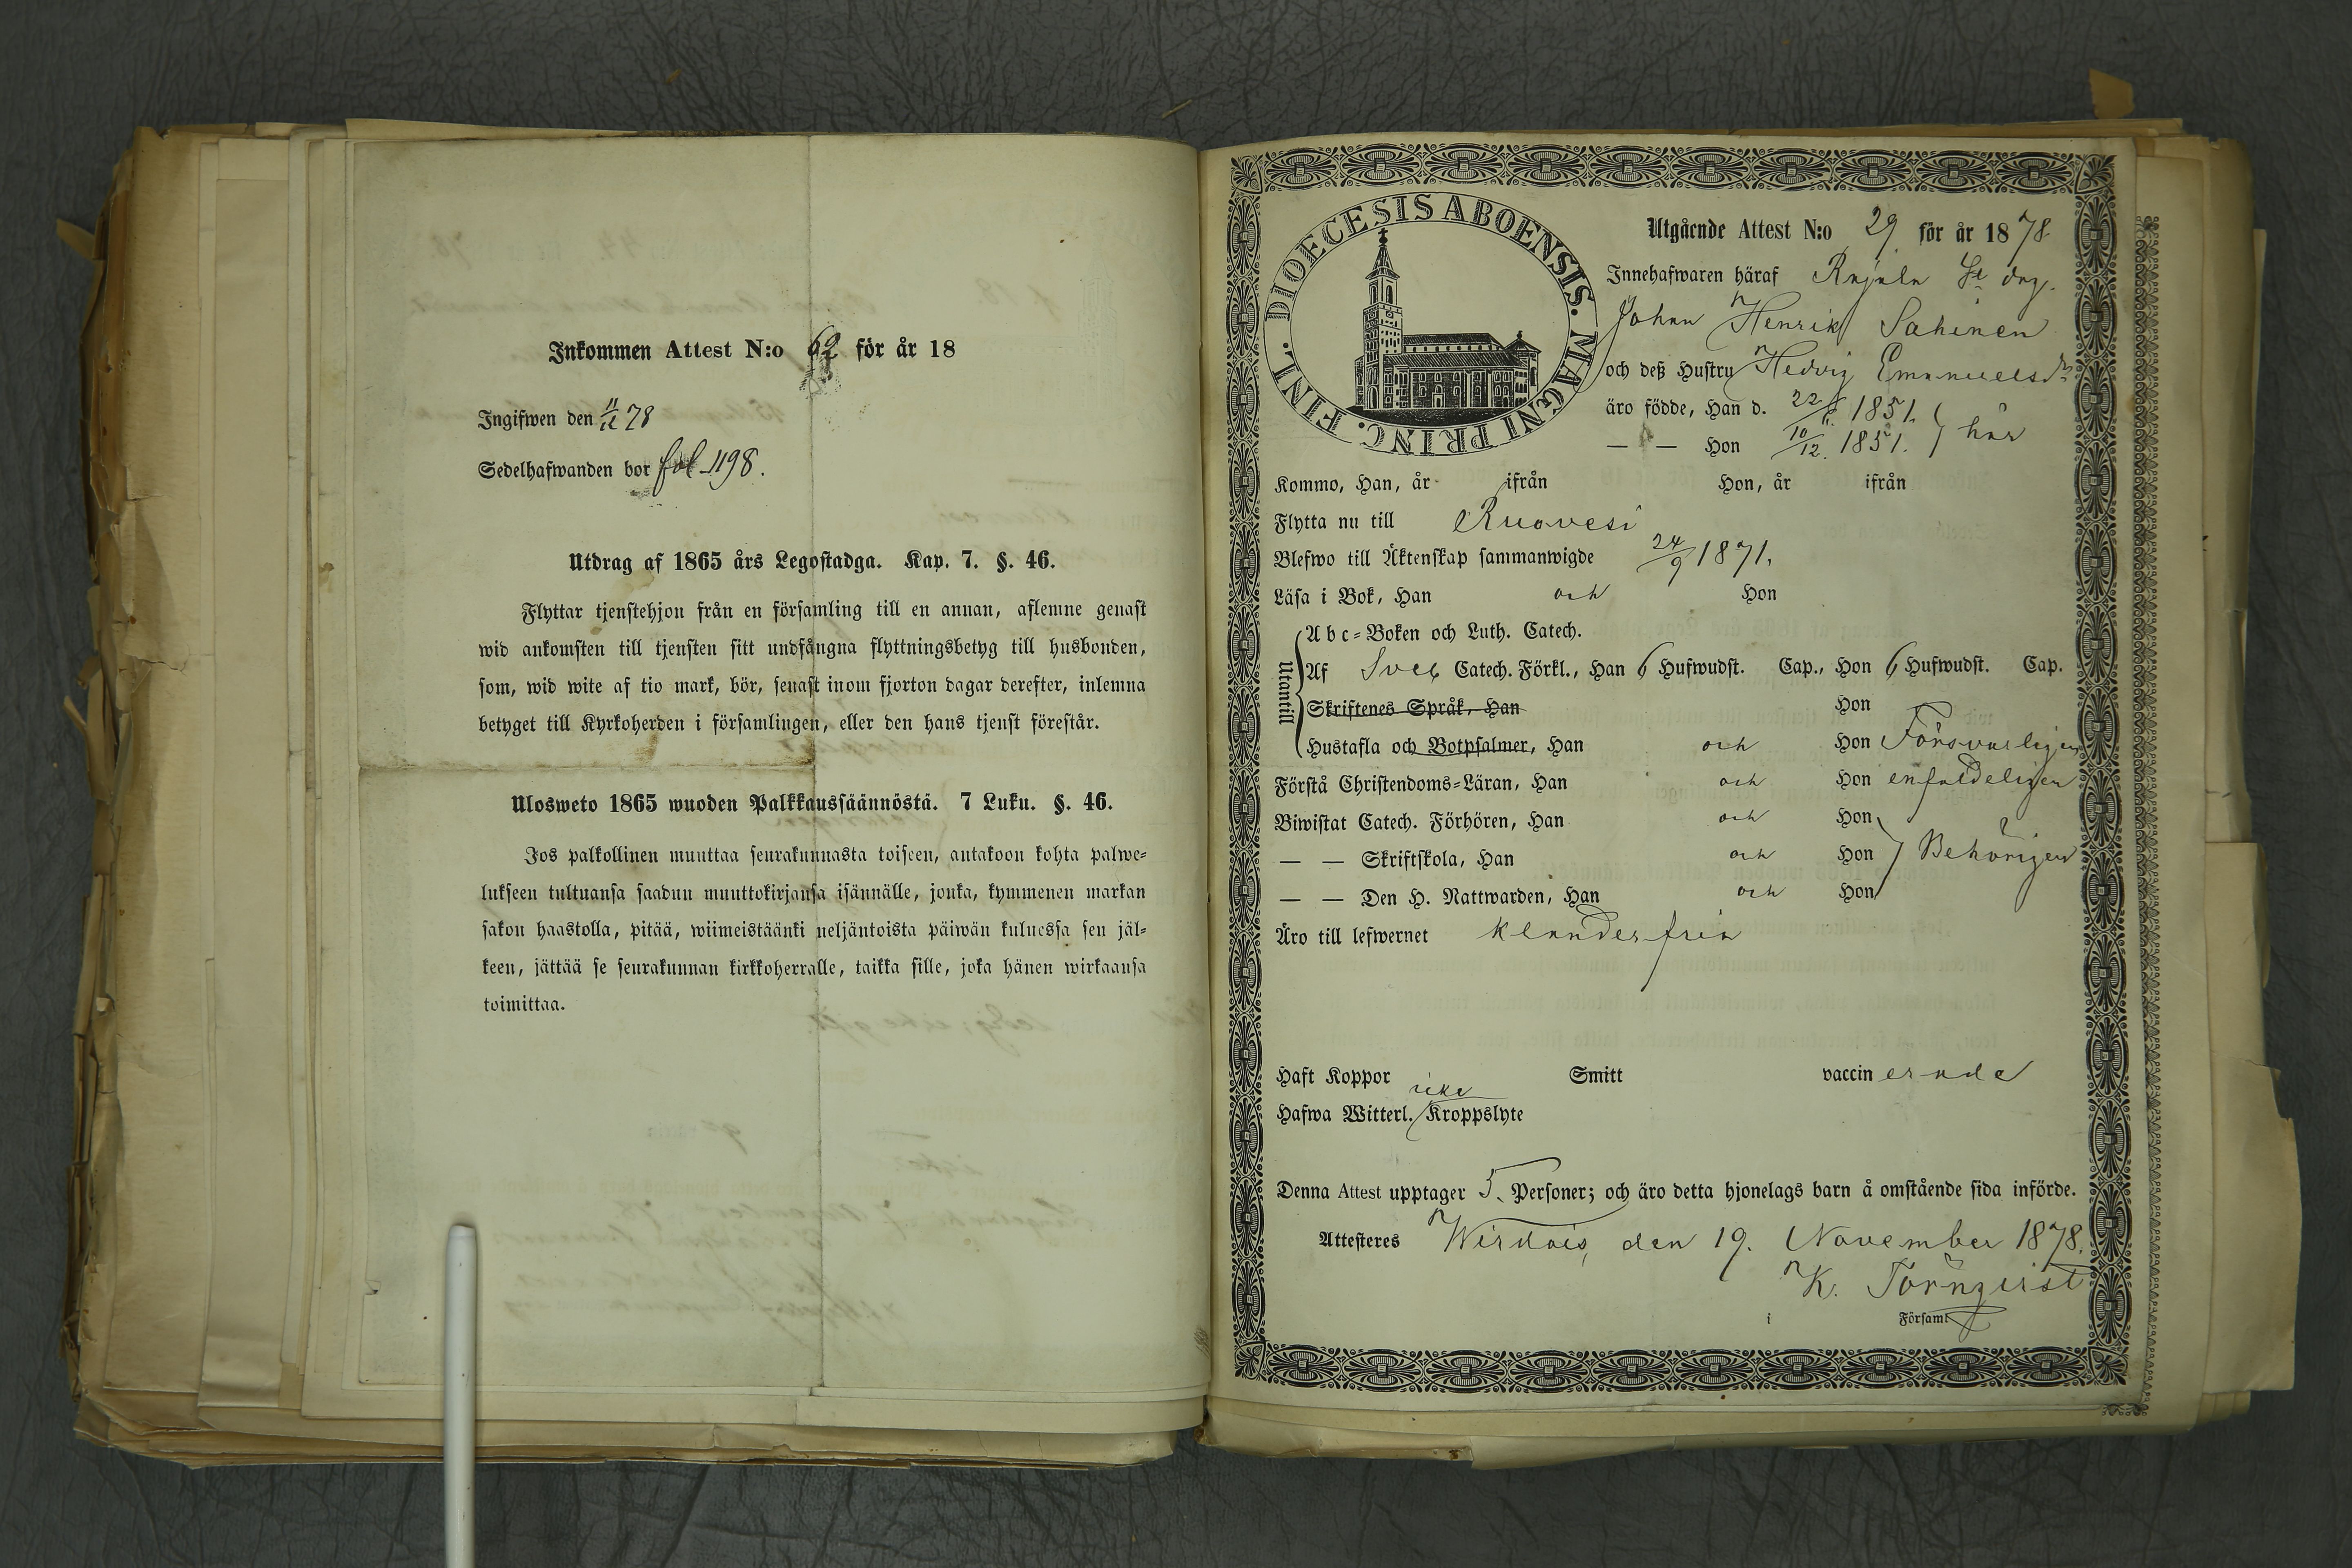 Inkommen Attest N:o 62 för år 18
Ingifwen den 11/12 78
Sedelhafwanden bor fol. 1198.
Utdrag af 1865 års Legostadga. Kap. 7. §. 46.
Flyttar tjenstehjon från en församling till en annan, aflemne genast
wid ankomsten till tjensten sitt undfångna flyttningsbetyg till husbonden,
som, wid wite af tio mark, bör, senast inom fjorton dagar derefter, inlemna
betyget till Kyrkoherden i församlingen, eller den hans tjenst förestår.
Ulosweto 1865 wuoden Palkkaussäännöstä. 7 Luku. §. 46.
Jos palkollinen muuttaa seurakunnasta toiseen, antakoon kohta palwe-
lukseen tultuansa saadun muuttokirjansa isännälle, jonka, kymmenen markan
sakon haastolla, pitää, wiimeistäänki neljäntoista päiwän kuluessa sen jäl-
keen, jättää se seurakunnan kirkkoherralle, taikka sille, joka hänen wirkaansa
toimittaa.
DIOECESIS ABOENSIS. MAGNI PRINC. FINL.
Utgående Attest N:o 29 för år 1878
Innehafwaren häraf
Johan Henrik Sahinen
och deß Hustru Hedvig Emanuelsdr
äro födde, Han d. 22/ 1851.
— — Hon 10/12. 1851. här
Kommo, Han, år ifrån Hon, år ifrån
Flytta nu till Ruovesi
Blefwo till Äktenskap sammanwigde 24/9 1871.
Läsa i Bok, Han och Hon
Utantill
Abc-Boken och Luth. Catech.
Af Sveb Catech. Förkl., Han 6 Hufwudst. Cap., Hon 6 Hufwudst. Cap.
Skriftenes Språk, Han Hon
Hustafla och Botpsalmer, Han och Hon Försvarligen
Förstå Christendoms-Läran, Han och Hon enfaldeligen
Biwistat Catech. Förhören, Han och Hon
— — Skriftskola, Han och Hon Behörigen
— — Den H. Nattwarden, Han och Hon
Äro till lefwernet klanderfria
Haft Koppor Smitt vaccinerade
Hafwa Witterl. icke Kroppslyte
Denna Attest upptager 5. Personer; och äro detta hjonelags barn å omstående sida införde.
Attesteres Wirdois, den 19. November 1878.
K. Törnqvist
i Församl